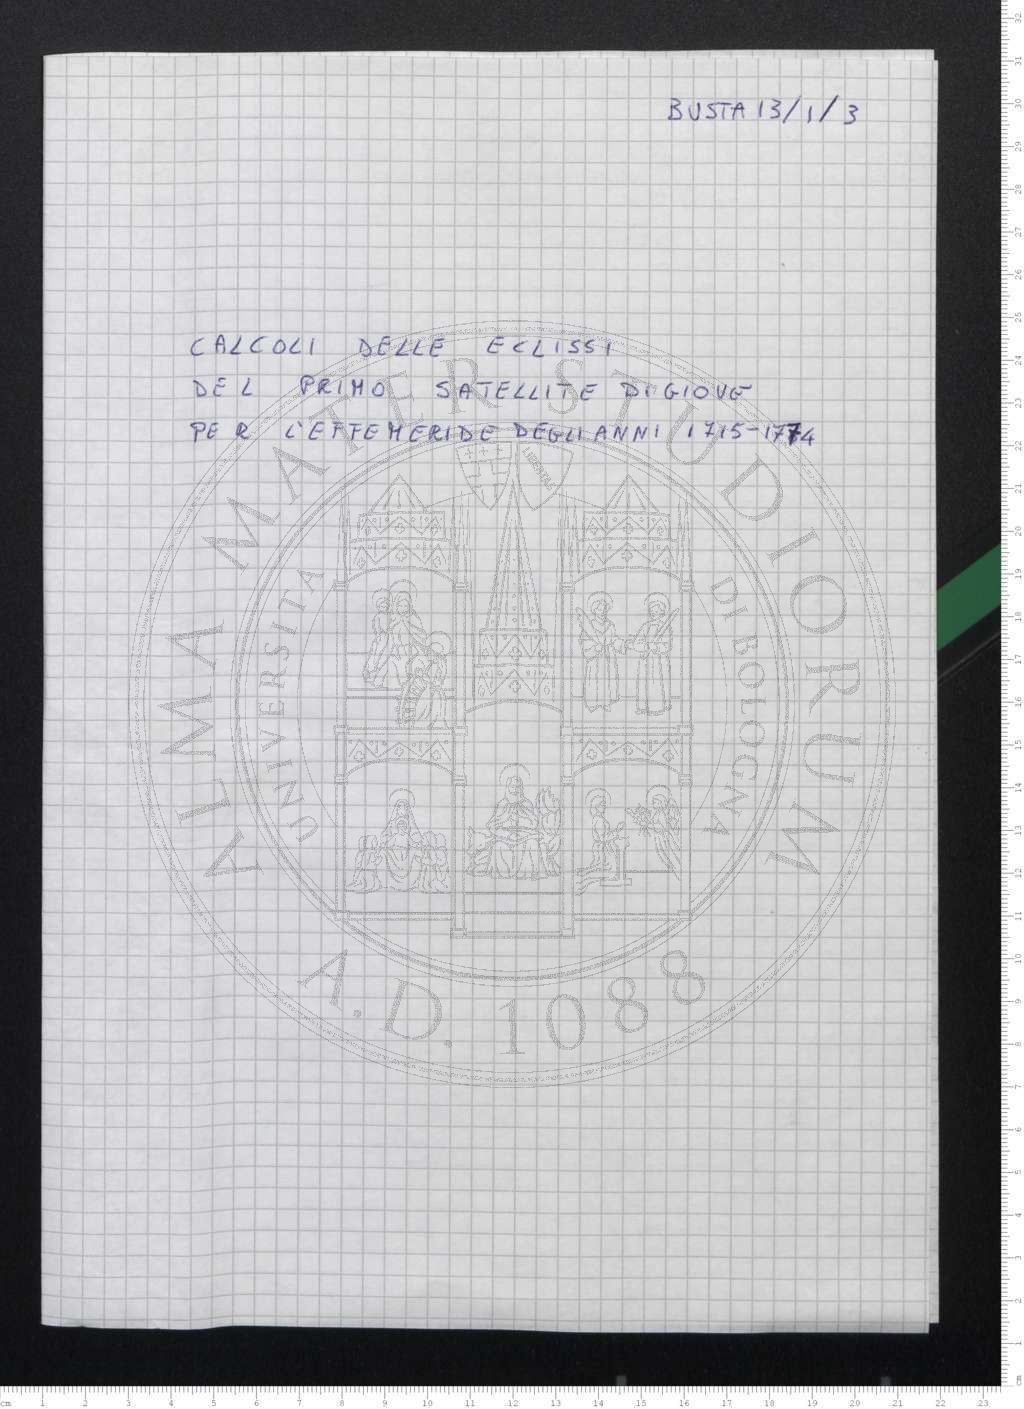 BUSTA 13/1/3
CALCOLI DELLE ECLISSI
DEL PRIMO SATELLITE DI GIOVE
PER L'EFFEMERIDE DEGLI ANNI 1715-1774
ALMA MATER STUDIORUM
UNIVERSITA DI BOLOGNA
LIBERTAS
A.D. 1088